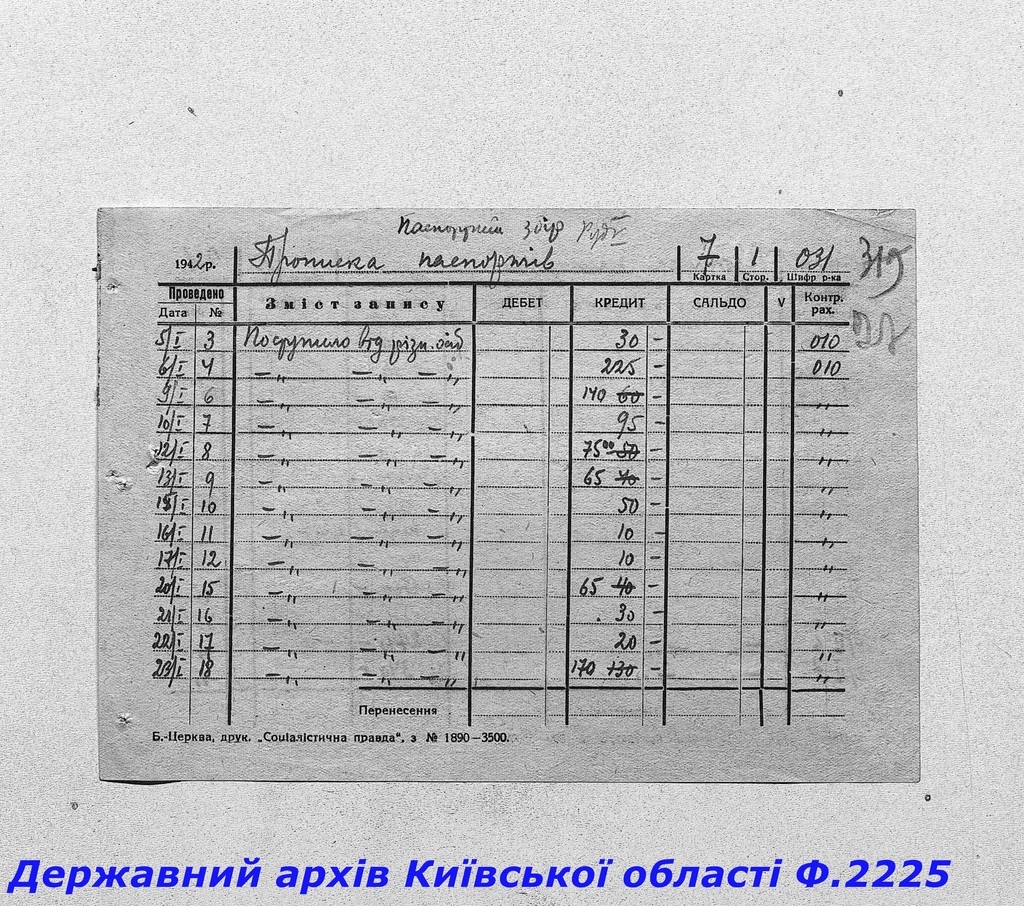 Паспортний збір
1942 р. Прописка паспортів 7 Картка 1 Стор. 031 Шифр р-ка 315
Проведено Зміст запису ДЕБЕТ КРЕДИТ САЛЬДО V Контр. рах.
Дата №
5/I 3 Поступило від різн. осіб 30 - 010
6/I 4 — „ — „ — „ 225 - 010
9/I 6 — „ — „ — „ 140 60 - „
10/I 7 — „ — „ — „ 95 - „
12/I 8 — „ — „ — „ 75 00 50 - „
13/I 9 — „ — „ — „ 65 40 - „
15/I 10 — „ — „ — „ 50 - „
16/I 11 — „ — „ — „ 10 - „
17/I 12 — „ — „ — „ 10 - „
20/I 15 — „ — „ — „ 65 40 - „
21/I 16 — „ — „ — „ 30 - „
22/I 17 — „ — „ — „ 20 - „
23/I 18 — „ — „ — „ 170 130 - „
Перенесення
Б.-Церква, друк. „Соціалістична правда“, з № 1890—3500.
Державний архів Київської області Ф.2225